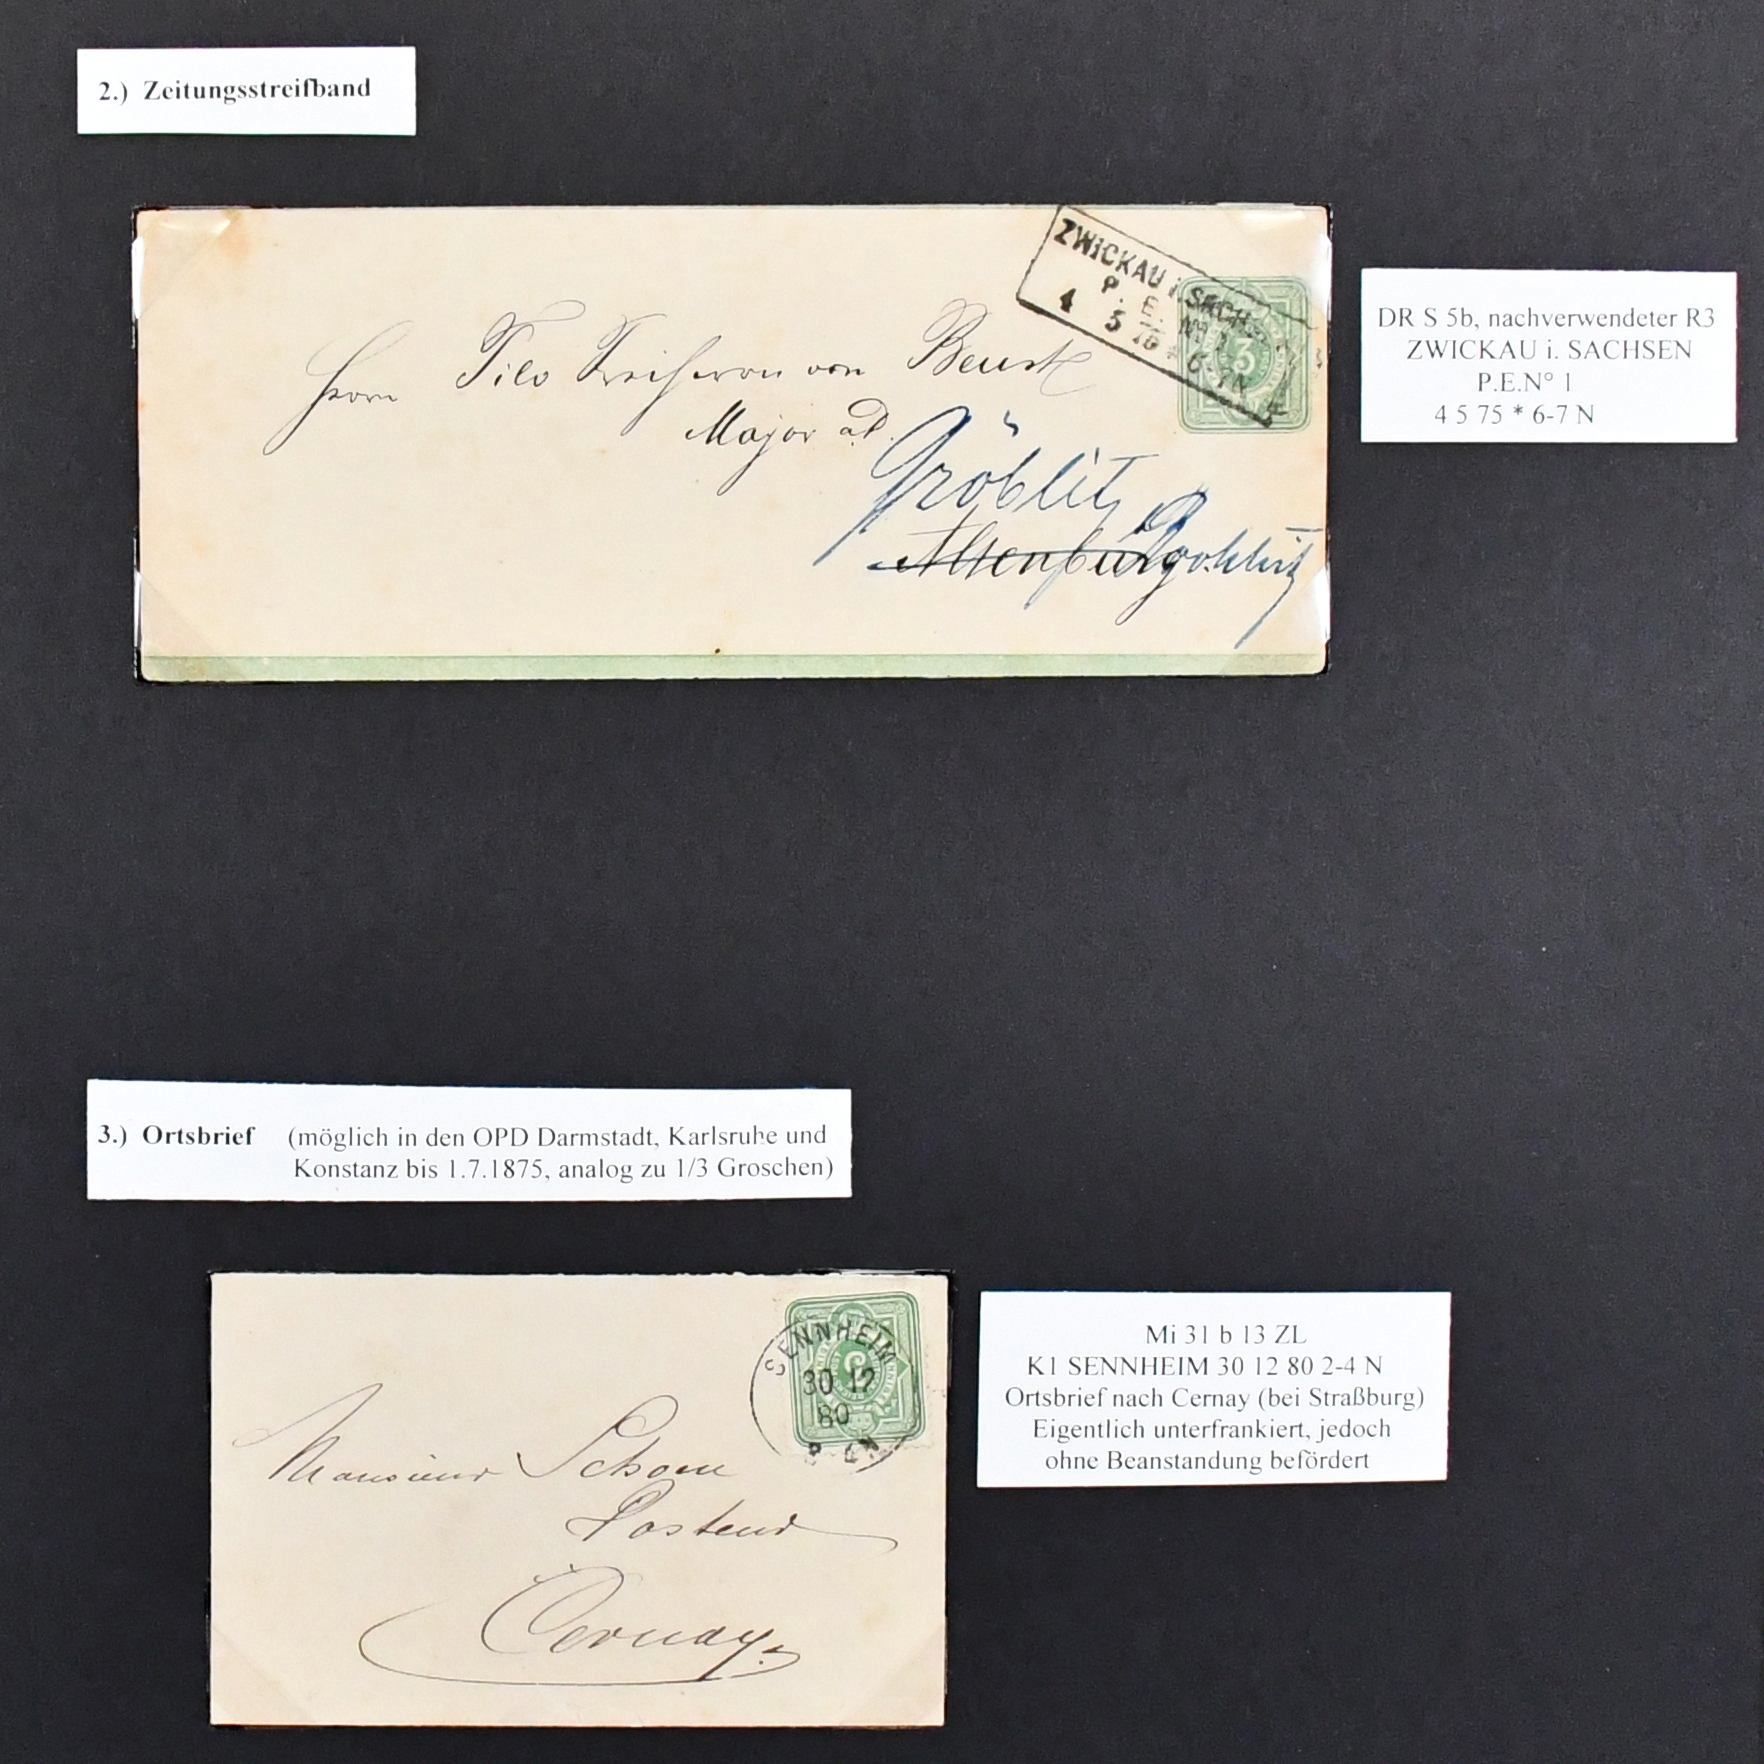 2.) Zeitungsstreifband
ZWICKAU i. SACHSEN
P. E. Nº 1
4 5 75 * 6-7N
3
Herrn Tilo Freiherrn von Beust
Major a.D.
Gröblitz
Altenburg
DR S 5b, nachverwendeter R3
ZWICKAU i. SACHSEN
P.E.N° 1
4 5 75 * 6-7 N
3.) Ortsbrief (möglich in den OPD Darmstadt, Karlsruhe und
Konstanz bis 1.7.1875, analog zu 1/3 Groschen)
SENNHEIM
30 12
80
2-4N
3
Monsieur Schoen
Cernay.
Mi 31 b 13 ZL
K1 SENNHEIM 30 12 80 2-4 N
Ortsbrief nach Cernay (bei Straßburg)
Eigentlich unterfrankiert, jedoch
ohne Beanstandung befördert